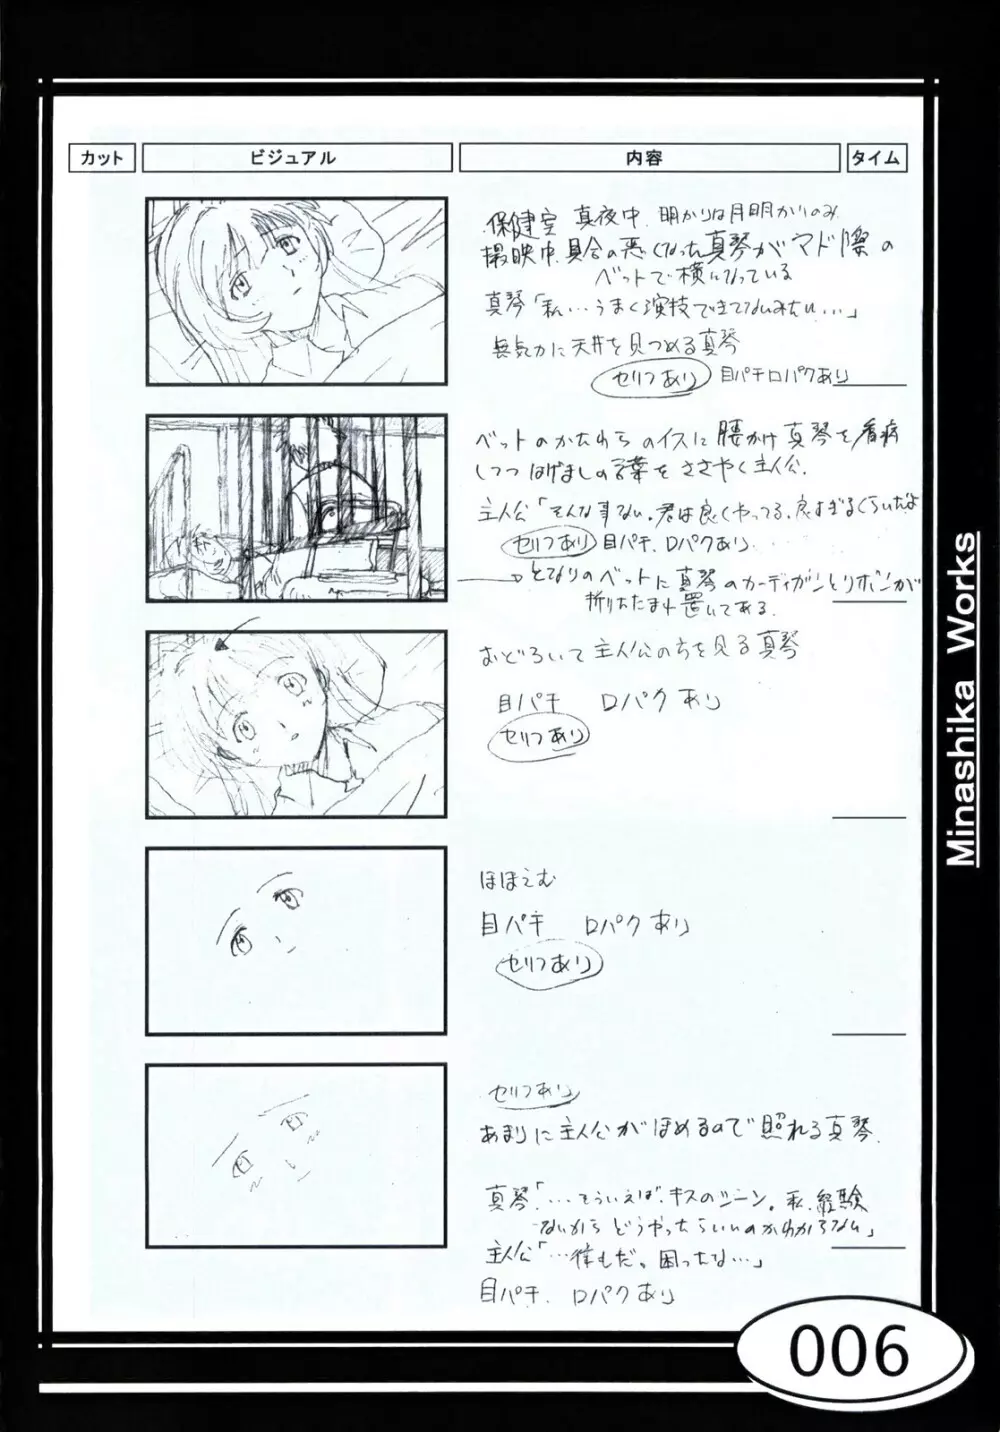 カット ビジュアル 内容 タイム
保健室 真夜中、明かりは月明かりのみ
撮映中、具合の悪くなった真琴がマド際の
ベットで横になっている
真琴「私…うまく演技できてないみたい…」
無気力に天井を見つめる真琴
セリフあり 目パチ口パクあり
ベットのかたわらのイスに腰かけ真琴を看病
しつつはげましの言葉をささやく主人公.
主人公「そんな事ない。君は良くやってる、良すぎるくらいだよ
セリフあり 目パチ、口パクあり
→となりのベットに真琴のカーディガンとリボンが
折りたたまれ置いてある.
おどろいて主人公の方を見る真琴
目パチ 口パクあり
セリフあり
ほほえむ
目パチ 口パクあり
セリフあり
セリフあり
あまりに主人公がほめるので照れる真琴.
真琴「…そういえば、キスのシーン。私、経験
ないからどうやったらいいのかわからない」
主人公「…僕もだ。困ったな…」
目パチ、口パクあり
Minashika Works
006